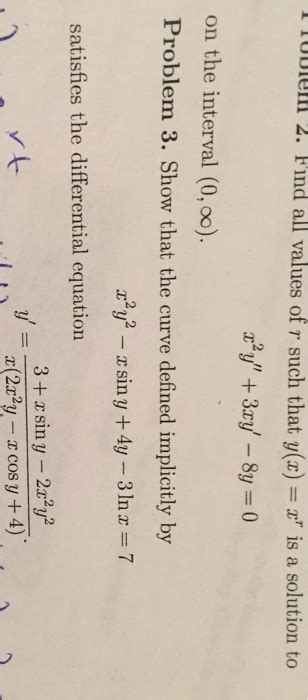 Problem 2. Find all values of r such that y(x) = x^r is a solution to
x²y″ + 3xy′ − 8y = 0
on the interval (0, ∞).
Problem 3. Show that the curve defined implicitly by
x²y² − x sin y + 4y − 3 ln x = 7
satisfies the differential equation
y′ = (3 + x sin y − 2x²y²) / (x(2x²y − x cos y + 4)).